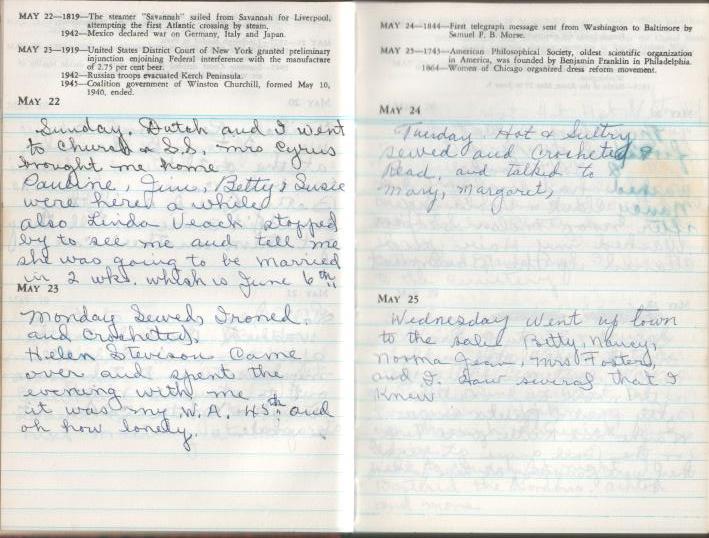 MAY 22—1819—The steamer "Savannah" sailed from Savannah for Liverpool,
attempting the first Atlantic crossing by steam.
1942—Mexico declared war on Germany, Italy and Japan.
MAY 23—1919—United States District Court of New York granted preliminary
injunction enjoining Federal interference with the manufacture
of 2.75 per cent beer.
1942—Russian troops evacuated Kerch Peninsula.
1945—Coalition government of Winston Churchill, formed May 10,
1940, ended.
MAY 22
Sunday. Dutch and I went
to Church & S.S. Mrs Cyrus
brought me home
Pauline, Jim, Betty & Susie
were here a while
also Linda Veach stopped
by to see me and tell me
she was going to be married
in 2 wks. which is June 6th.
MAY 23
Monday Sewed, Ironed,
and crocheted.
Helen Stevison Came
over and spent the
evening with me
it was my W.A. 45th and
oh how lonely.
MAY 24—1844—First telegraph message sent from Washington to Baltimore by
Samuel F. B. Morse.
MAY 25—1743—American Philosophical Society, oldest scientific organization
in America, was founded by Benjamin Franklin in Philadelphia.
1864—Women of Chicago organized dress reform movement.
MAY 24
Tuesday Hot & Sultry
sewed and crocheted &
read, and talked to
Mary, Margaret,
MAY 25
Wednesday Went up town
to the sale Betty, Nancy,
Norma Jean, Mrs Foster,
and I. Saw several that I
knew